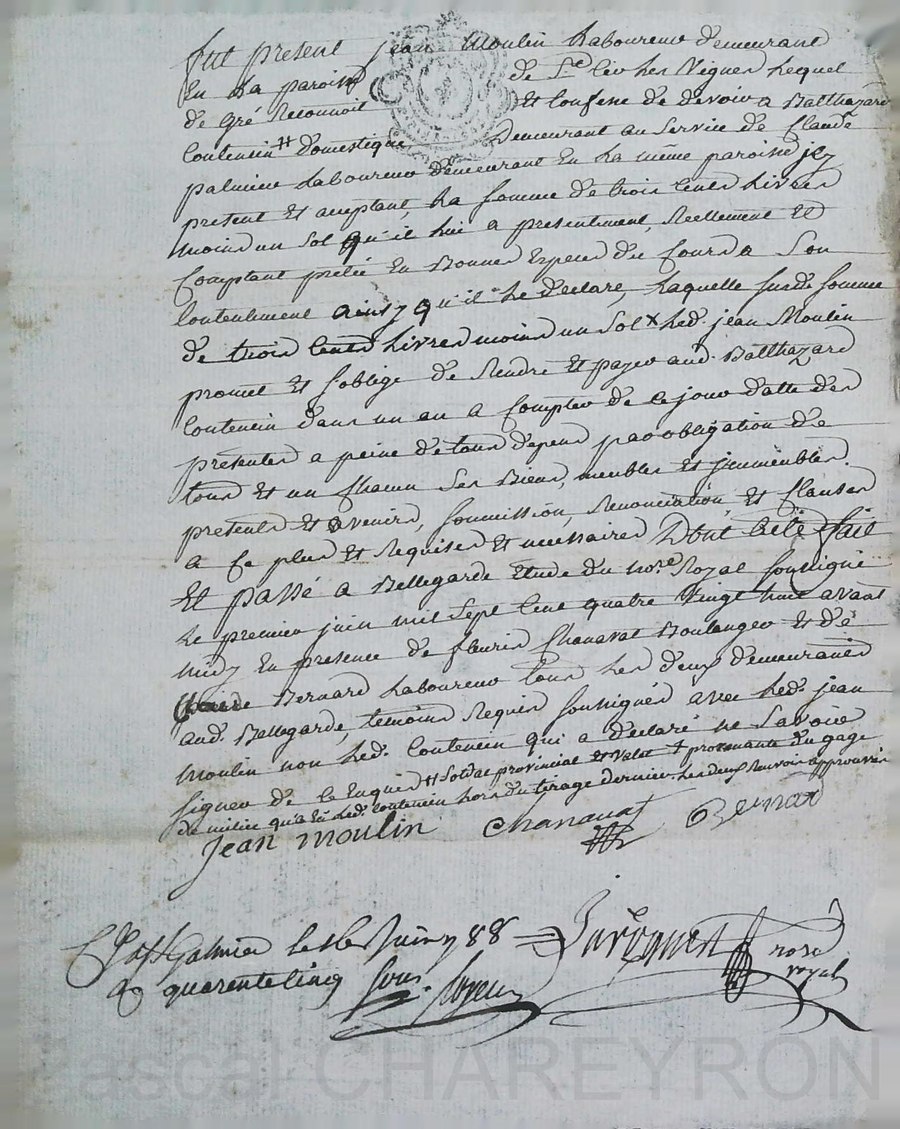 fut présent jean Moulin Laboureur demeurant
En La paroisse de St Cir Les Vignes Lequel
de gré Reconnoit Et Confesse de devoir a Balthazard
Contencin # domestique demeurant au Service de Claude
palmier Laboureur demeurant En La même paroisse icy
present Et acceptant, La somme de trois Cents Livres
moins un Sol qu'il lui a presentement, Reellement Et
Comptant preté En Bonnes Especes du Cours a Son
Contentement ainsy qu'il Le declare, Laquelle susde somme
de trois Cents Livres moins un Sol x Led. jean Moulin
promet Et s'oblige de Rendre Et payer aud. Balthazard
Contencin dans un an a Compter de ce jour datte des
presentes a peine de tous depens par obligation de
tous Et un chacun Ses Biens, meubles Et jmmeubles
presents Et avenirs, soumission, Renonciation, Et Clauses
a ce plus Et Requises Et necessaires Dont Acte fait
Et passé a Bellegarde Etude du nore Royal soussigné
Le premier juin mil Sept Cent quatre Vingt huit avant
midy En presence de fleuris Chanavat Boulanger Et de
Bernard Laboureur tous Les deux demeurants
aud. Bellegarde, temoins Requis soussignés avec Led. jean
Moulin non Led. Contencin qui a declaré ne Savoir
signer de ce Enquis # Soldat provincial Et Valet x provenante du gage
de milice qu'a Eu Led. Contencin Lors du tirage dernier. Les deux Renvois approuvés
Jean moulin Chanavat Bernard
Galmier le juin 88
quarente cinq sous.
nore
royal
Pascal CHAREYRON